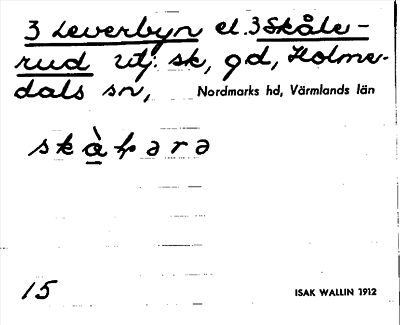 3 Leverbyn el. 3 Skåle-
rud utj. sk, gd, Holme-
dals sn, Nordmarks hd, Värmlands län
15
ISAK WALLIN 1912